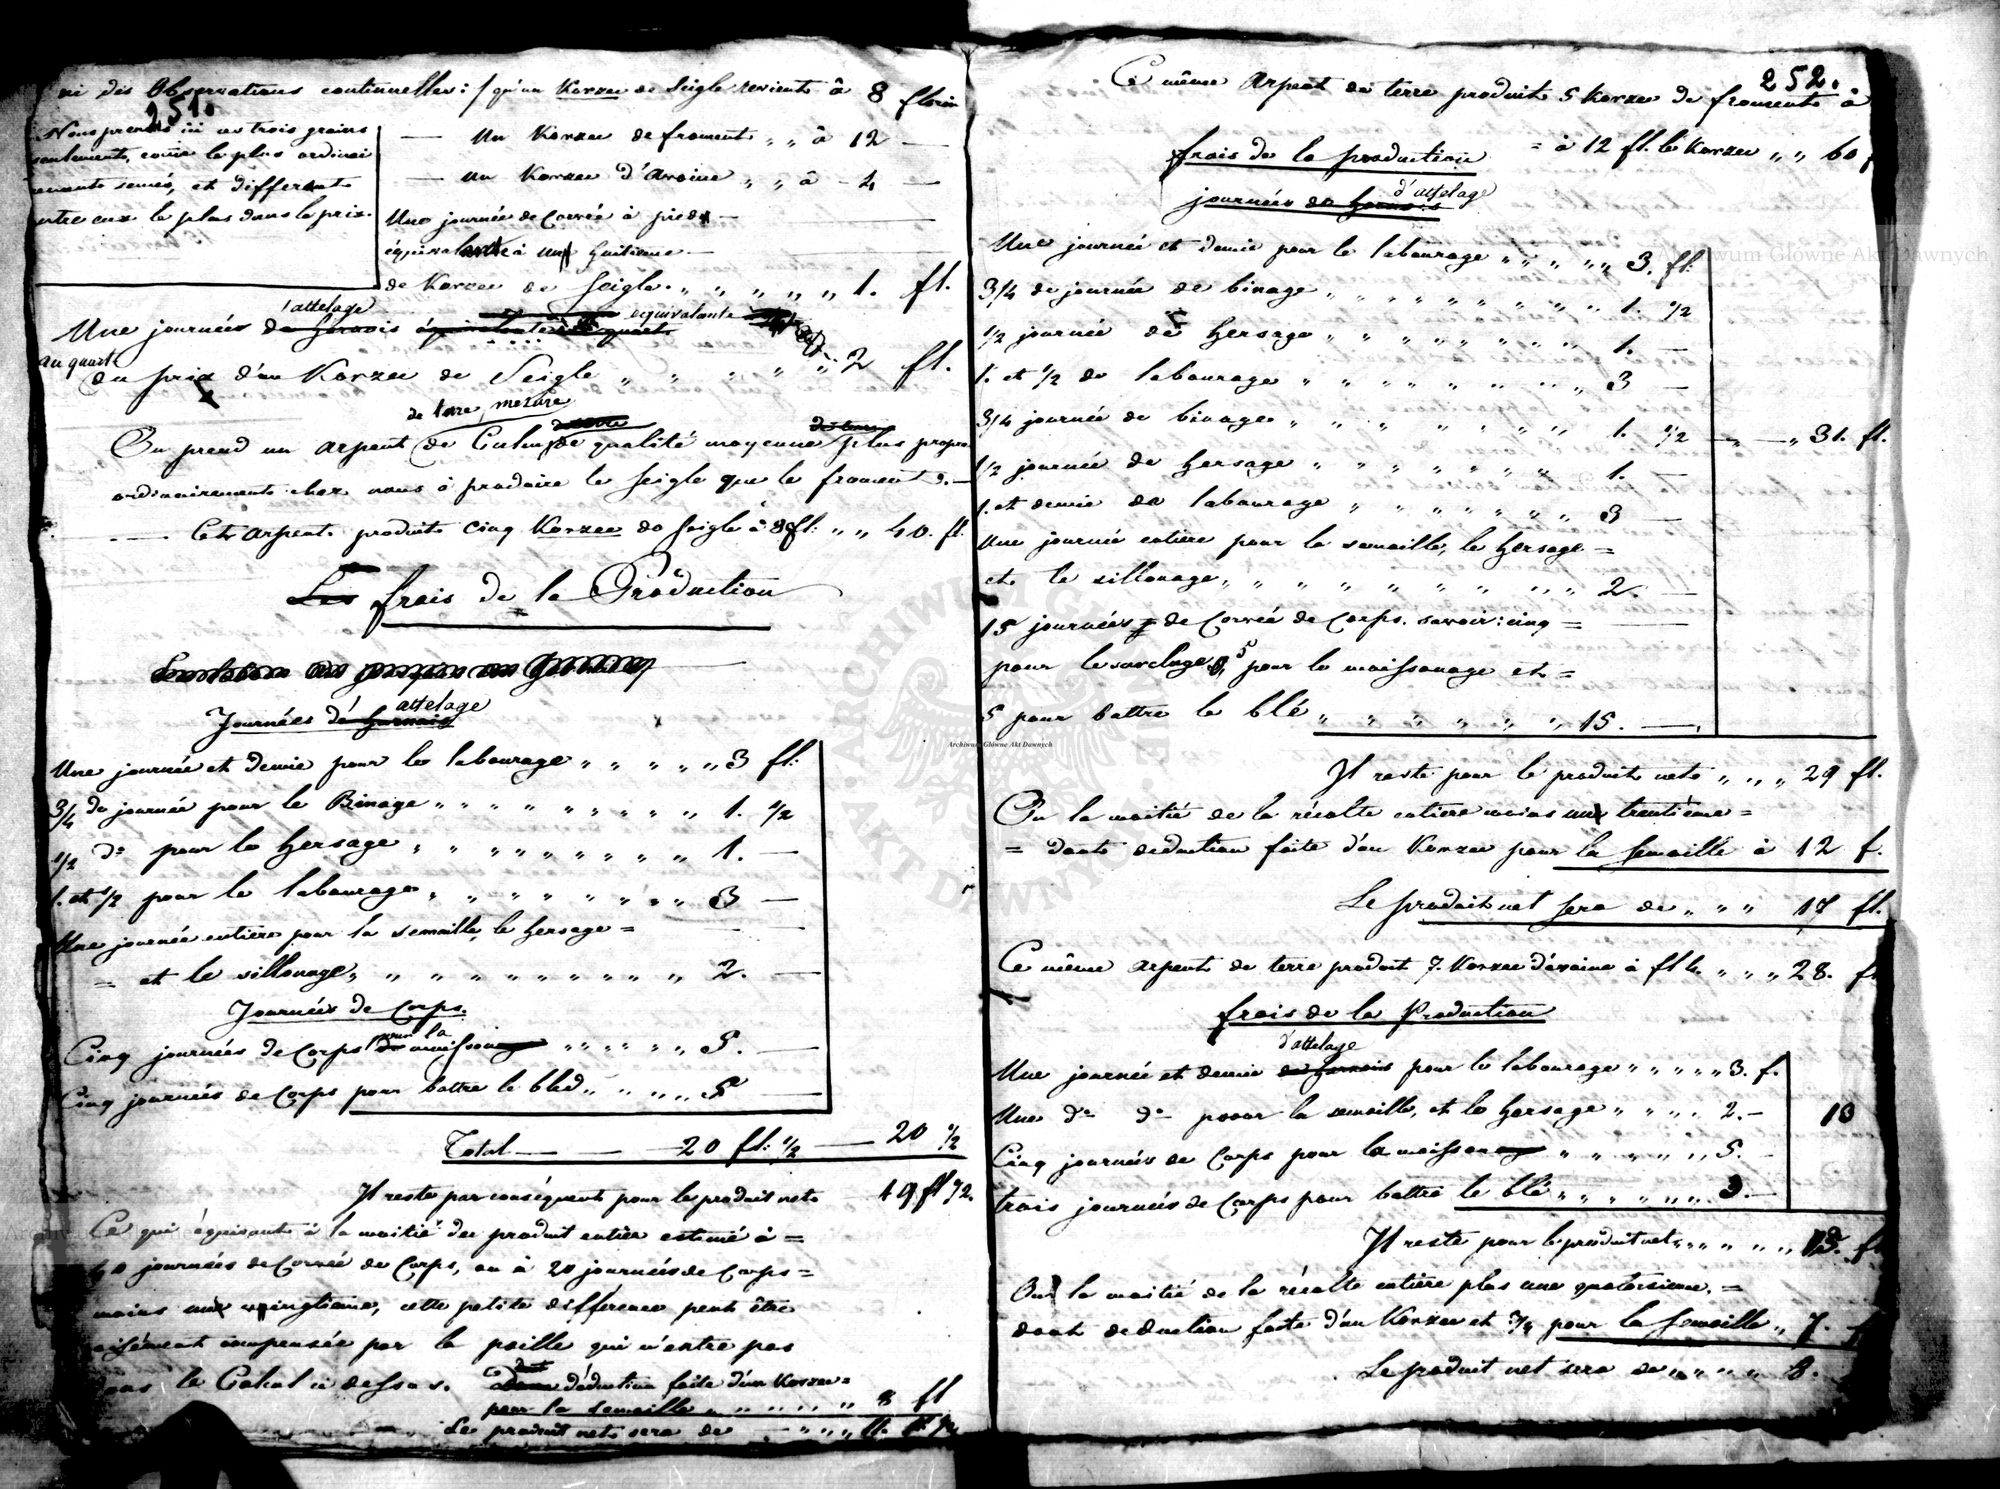 251.
ni des Observations continuelles: qu'un Korzec de Seigle revient à 8 florin
Nous prenons ici ces trois grains
seulement, come le plus ordinai
rement semés, et differents
entre eux le plus dans le prix.
— un Korzec de froment „ „ à 12 —
— un Korzec d'Avoine „ „ à - 4 —
Une journée de Corvée à pied —
équivalente à un huitieme —
de Korzec de Seigle. „ „ „ „ „ „ 1. fl.
Une journées d'attelage de harnois equivalente
au quart du prix d'un Korzec de Seigle „ „ „ „ „ 2 fl.
de terre, mesure
On prend un arpent de Culm, de qualité moyenne plus propre
ordinairement chez nous à produire le seigle que le froment
— Cet arpent produit Cinq Korzec de Seigle à 8 fl: „ „ 40. fl.
Les frais de la Production
Journées d'attelage de harnois
Une journée et demie pour le labourage „ „ „ „ „ 3 fl:
3/4 de journée pour le Binage „ „ „ „ „ „ „ „ „ 1. 1/2
1/2 do pour le hersage „ „ „ „ „ „ „ „ „ 1. —
1. et 1/2 pour le labourage „ „ „ „ „ „ „ „ 3 —
Une journée entière pour la semaille, le hersage =
= et le sillonage, „ „ „ „ „ „ „ „ „ 2. —
Journées de Corps.
Cinq journées de Corps pour la moisson „ „ „ „ „ „ 5. —
Cinq journées de Corps pour battre le bled „ „ „ „ „ 5 —
Total — — — 20 fl: 1/2 — 20 1/2
Il reste par conséquent pour le produit net 19 fl 1/2.
Ce qui équivaut à la moitié du produit entier estimé à =
40 journées de Corvée de Corps, ou à 20 journées de Corps =
moins un vingtieme, cette petite différence peut être
aisément compensée par la paille qui n'entre pas
dans le Calcul ci dessus. dont déduction faite d'un Korzec =
pour la semaille „ „ „ „ „ „ 8 fl
Le produit net sera de „ „ „ „ 11. fl. 1/2
252.
Ce même Arpent de terre produit 5 Korzec de froment à
= à 12 fl. le Korzec „ „ 60
frais de la production
journées d'attelage de harnois
Une journée et demie pour le labourage „ „ „ „ „ 3. fl:
3/4 de journée de binage „ „ „ „ „ „ „ „ „ 1. 1/2
1/2 journée de hersage „ „ „ „ „ „ „ „ 1. —
1. et 1/2 de labourage „ „ „ „ „ „ „ „ 3 —
3/4 journée de binage „ „ „ „ „ „ „ „ 1. 1/2 — „ — „ 31. fl.
1/2 journée de hersage „ „ „ „ „ „ „ 1. —
1. et demie de labourage „ „ „ „ „ „ „ 3 —
Une journée entière pour la semaille, le hersage =
et le sillonage, „ „ „ „ „ „ „ „ „ 2. —
15 journées de Corvée de Corps. savoir: cinq =
pour le sarclage, 5 pour le moissonage et =
5 pour battre le blé „ „ „ „ „ „ 15. —
Il reste pour le produit net „ „ „ 29 fl.
Ou la moitié de la récolte entiere moins un trentieme =
= dont deduction faite d'un Korzec pour la semaille à 12 f.
Le produit net sera de „ „ „ 17 fl.
Ce même arpent de terre produit 7. Korzec d'avoine à fl 4. „ „ „ 28. fl
frais de la Production
Une journée et demie d'attelage de harnois pour le labourage „ „ „ „ „ 3. f.
Une do do pour la semaille, et le hersage „ „ „ „ 2. — 13
Cinq journées de Corps pour la moisson „ „ „ „ „ „ 5. —
trois journées de Corps pour battre le blé „ „ „ „ „ „ 3. —
Il reste pour le produit net „ „ „ „ „ 15. fl
Ou la moitié de la récolte entière plus une quatorzieme, =
dont deduction faite d'un Korzec et 3/4 pour la semaille „ 7.
Le produit net sera de „ „ „ „ „ 8.
Archiwum Główne Akt Dawnych
ARCHIWUM GŁÓWNE AKT DAWNYCH
Archiwum Główne Akt Dawnych